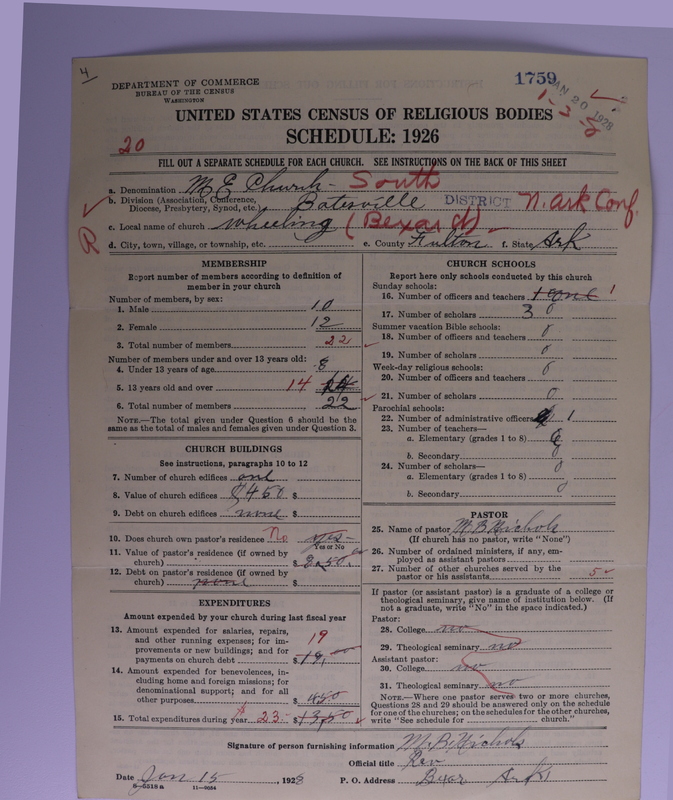 4
DEPARTMENT OF COMMERCE
BUREAU OF THE CENSUS
WASHINGTON
1759
JAN 20 1928
1-3-8
UNITED STATES CENSUS OF RELIGIOUS BODIES
SCHEDULE: 1926
20
FILL OUT A SEPARATE SCHEDULE FOR EACH CHURCH. SEE INSTRUCTIONS ON THE BACK OF THIS SHEET
a. Denomination M E Church - South
b. Division (Association, Conference, Diocese, Presbytery, Synod, etc.) Batesville DISTRICT N. Ark Conf.
c. Local name of church Wheeling (Bexar d)
R
d. City, town, village, or township, etc. e. County Fulton f. State Ark
MEMBERSHIP
Report number of members according to definition of
member in your church
Number of members, by sex:
1. Male 10
2. Female 12
3. Total number of members 22
Number of members under and over 13 years old:
4. Under 13 years of age 8
5. 13 years old and over 14
6. Total number of members 22
NOTE.—The total given under Question 6 should be
same as the total of males and females given under Question 3.
CHURCH BUILDINGS
See instructions, paragraphs 10 to 12
7. Number of church edifices one
8. Value of church edifices $450 $
9. Debt on church edifices none $
10. Does church own pastor's residence No yes
Yes or No
11. Value of pastor's residence (if owned by
church) $
12. Debt on pastor's residence (if owned by
church) none $
EXPENDITURES
Amount expended by your church during last fiscal year
13. Amount expended for salaries, repairs,
and other running expenses; for im-
provements or new buildings; and for
payments on church debt 19 $
14. Amount expended for benevolences,
including home and foreign missions; for
denominational support; and for all
other purposes $
15. Total expenditures during year 23- $
CHURCH SCHOOLS
Report here only schools conducted by this church
Sunday schools:
16. Number of officers and teachers 1
17. Number of scholars 30
Summer vacation Bible schools:
18. Number of officers and teachers 0
19. Number of scholars 0
Week-day religious schools:
20. Number of officers and teachers 0
21. Number of scholars 0
Parochial schools:
22. Number of administrative officers 1
23. Number of teachers—
a. Elementary (grades 1 to 8)
b. Secondary 0
24. Number of scholars—
a. Elementary (grades 1 to 8) 0
b. Secondary 0
PASTOR
25. Name of pastor M. B. Nichols
(If church has no pastor, write "None")
26. Number of ordained ministers, if any, em-
ployed as assistant pastors
27. Number of other churches served by the
pastor or his assistants 5
If pastor (or assistant pastor) is a graduate of a college or
theological seminary, give name of institution below. (If
not a graduate, write "No" in the space indicated.)
Pastor:
28. College no
29. Theological seminary no
Assistant pastor:
30. College no
31. Theological seminary no
NOTE.—Where one pastor serves two or more churches,
Questions 28 and 29 should be answered only on the schedule
for one of the churches; on the schedules for the other churches,
write "See schedule for ________ church."
Signature of person furnishing information M. B. Nichols
Official title Rev
Date Jan 15, 1928 P. O. Address Bexar Ark
8-5518a 11-9084